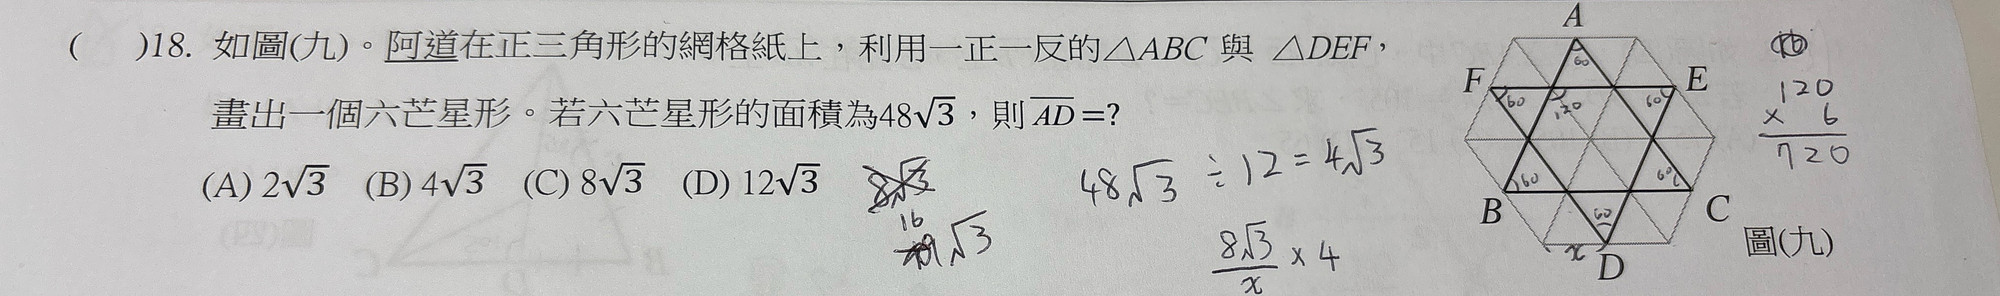 (　)18. 如圖(九)。阿道在正三角形的網格紙上，利用一正一反的△ABC 與 △DEF，
畫出一個六芒星形。若六芒星形的面積為48√3，則AD=?
(A) 2√3　(B) 4√3　(C) 8√3　(D) 12√3
8√3
16
√3
48√3 ÷ 12 = 4√3
8√3/x × 4
A
F
E
B
C
D
60
60
120
60
60
60
60
x
圖(九)
120
× 6
720